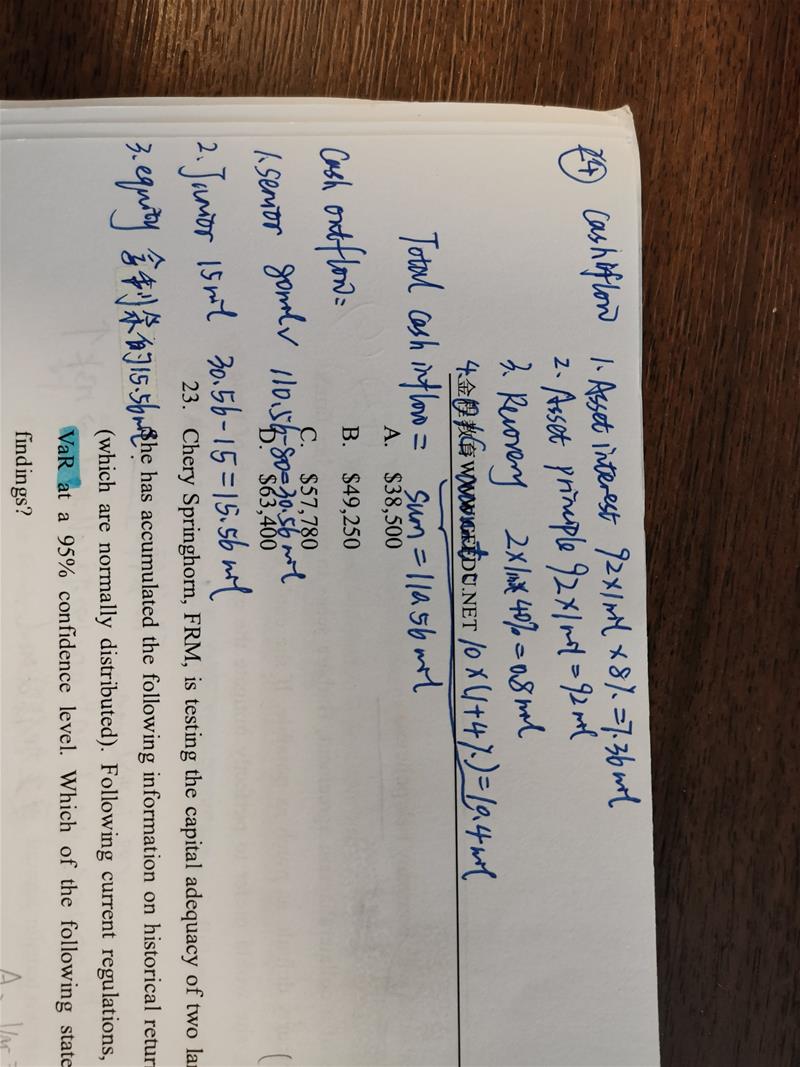 24 Cash inflow 1. Asset interest 92×1ml×8%=7.36ml
2. Asset principle 92×1ml=92ml
3. Recovery 2×1ml×40%=0.8ml
4. 10×(1+4%)=10.4ml
金程教育 WWW.GFEDU.NET
Total cash inflow = sum = 110.56ml
A. $38,500
B. $49,250
C. $57,780
D. $63,400
Cash outflow =
1. senior 80ml 110.56-80=30.56ml
2. Junior 15ml 30.56-15=15.56ml
3. equity 15.56ml.
23. Chery Springhorn, FRM, is testing the capital adequacy of two la
She has accumulated the following information on historical return
(which are normally distributed). Following current regulations,
VaR at a 95% confidence level. Which of the following state
findings?